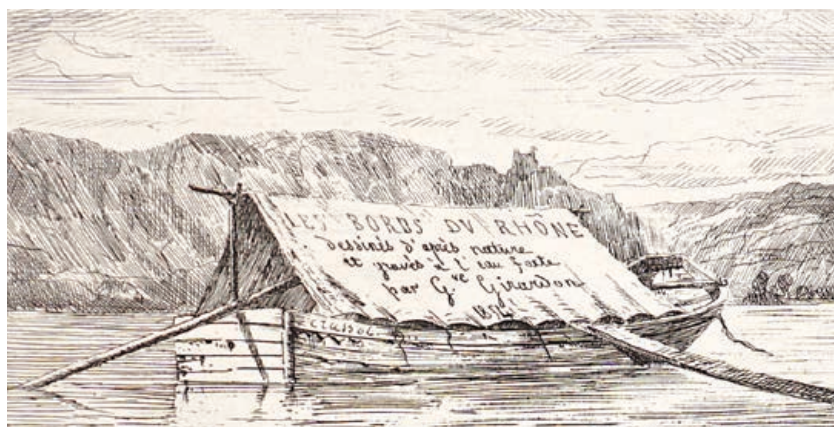 LES BORDS DU RHÔNE
dessinés d'après nature
et gravés à l'eau forte
par G.ve Girardon
Crussol